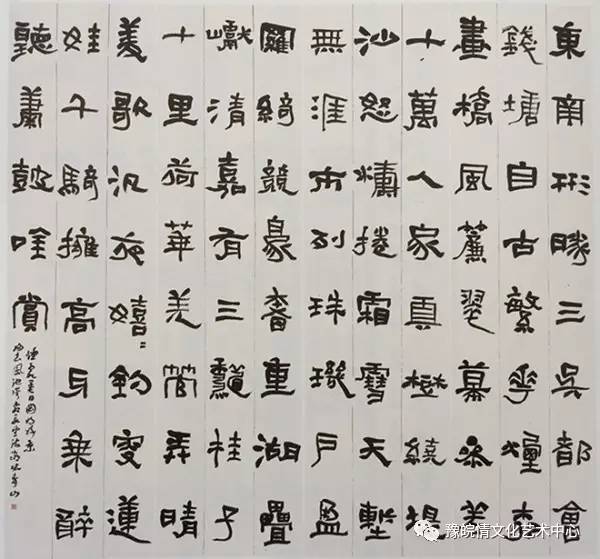 東南形勝三吳都會
錢塘自古繁華煙柳
畫橋風簾翠幕參差
十萬人家雲樹繞堤
沙怒濤捲霜雪天塹
無涯市列珠璣戶盈
羅綺競豪奢重湖疊
巘清嘉有三龝桂子
十里荷華羌管弄晴
菱歌汎夜嬉〻釣叟蓮
娃千騎擁高牙乘醉
聽蕭鼓吟賞
豫皖情文化艺术中心